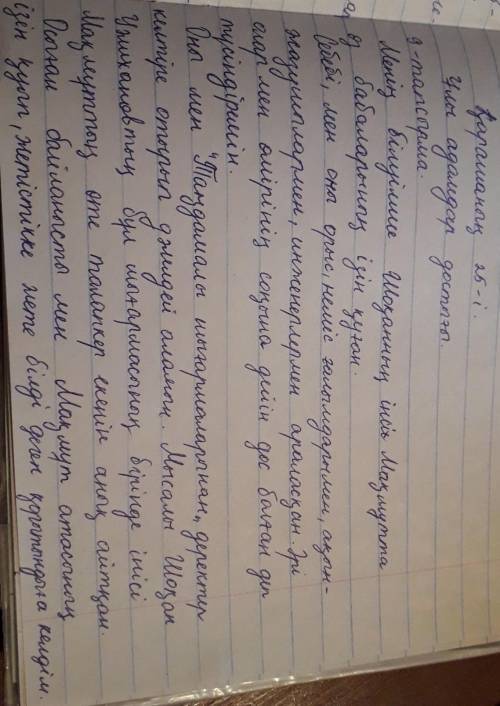 Қарашаның 25-і.
Ұлы адамдар достығы.
9-тапсырма.
Менің білуімше Шоқанның інісі Мақмұтта
өз бабаларының ізін қуған.
Себебі, мен оны орыс, неміс ғалымдарымен, ақын-
жазушылармен, инженерлермен араласқан. Әрі
олармен өмірінің соңына дейін дос болған деп
түсіндіремін.
Оны мен "Таңдамалы шығармаларынан, деректер
келтіре отырып дәлелдей аламын. Мысалы Шоқан
Уәлихановтың бұл шығармасының бірінде інісі
Мақмұттың өте талапкер екенін анық айтқан.
Осыған байланысты мен Мақмұт атасының
ізін қуып, жетістікке жете білді деген қорытындыға келдім.